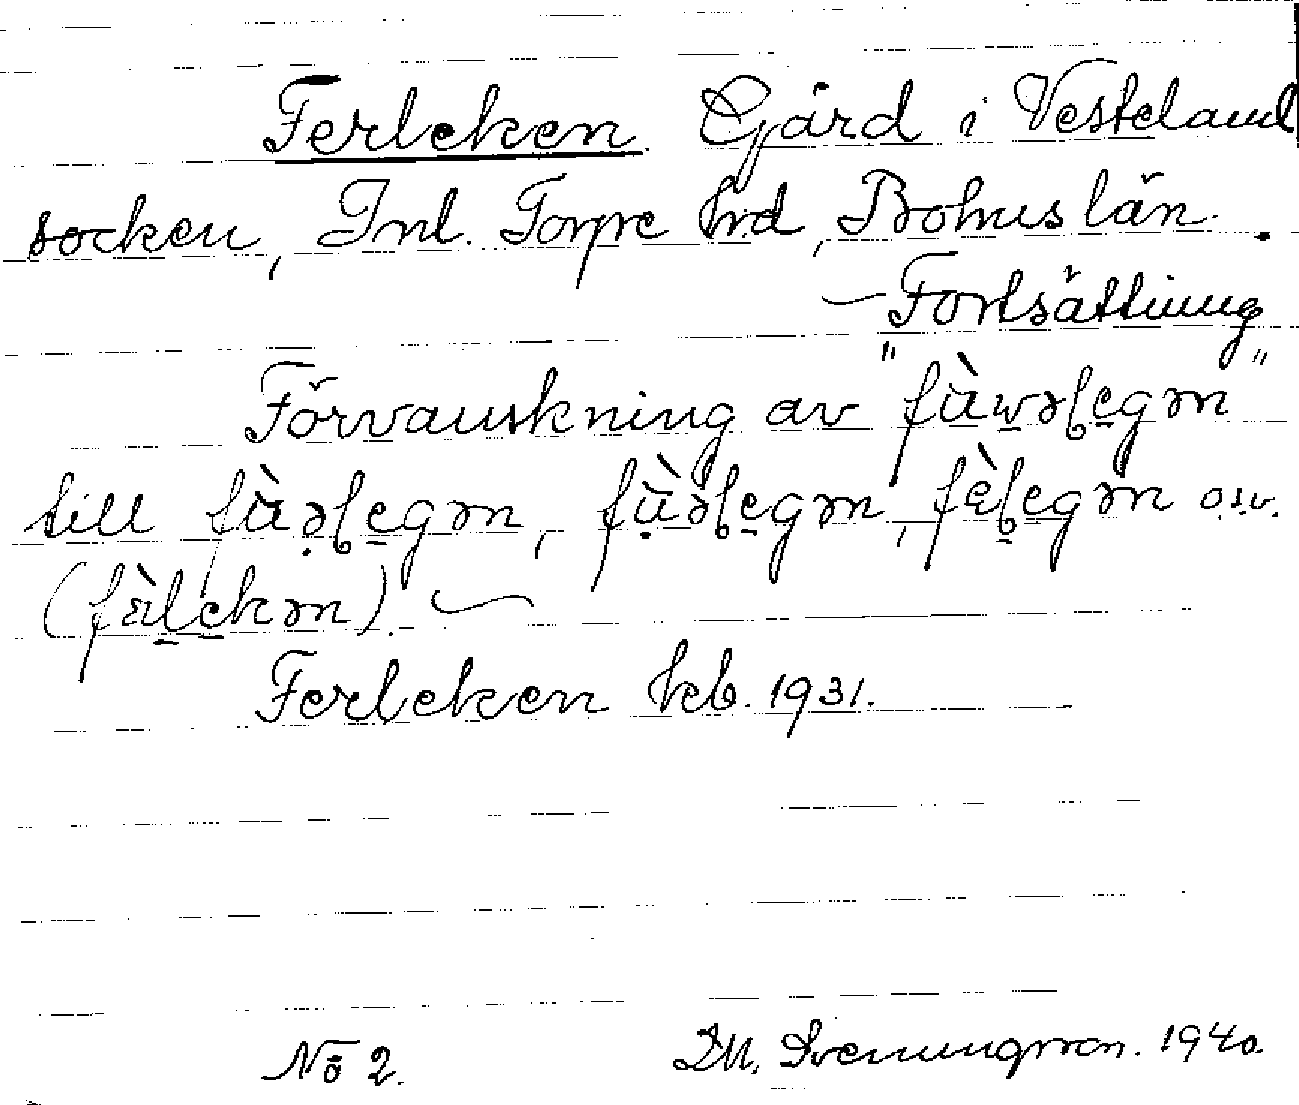 Ferleken. Gård i Vesteland
socken, Inl. Torpe hrd, Bohuslän.
— Fortsättning
Förvanskning av "fàwəlegən"
till fàəlegən, fằəlegən, fèlegən o.s.v.
(fàlekən). —
Ferleken feb. 1931.
No 2. D.M. Svenungsson. 1940.